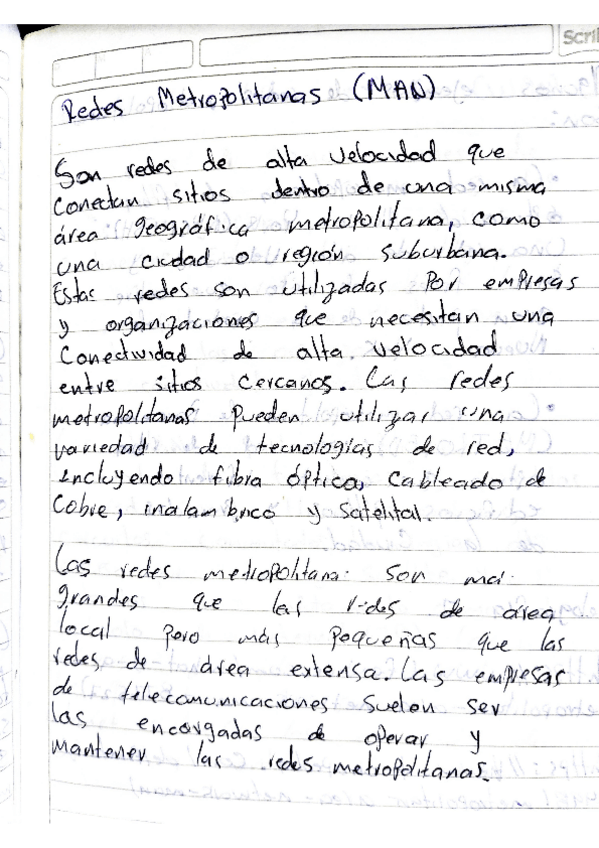 Scri
Redes Metropolitanas (MAN)
Son redes de alta velocidad que
conectan sitios dentro de una misma
área geográfica metropolitana, como
una ciudad o región suburbana.
Estas redes son utilizadas por empresas
y organizaciones que necesitan una
Conectividad de alta velocidad
entre sitios cercanos. Las redes
metropolitanas pueden utilizar una
variedad de tecnologías de red,
incluyendo fibra óptica, cableado de
Cobre, inalambrico y satelital.
Las redes metropolitana son ma
grandes que las redes de área
local pero más pequeñas que las
redes de área extensa. Las empresas
de telecomunicaciones suelen ser
las encargadas de operar y
mantener las redes metropolitanas.